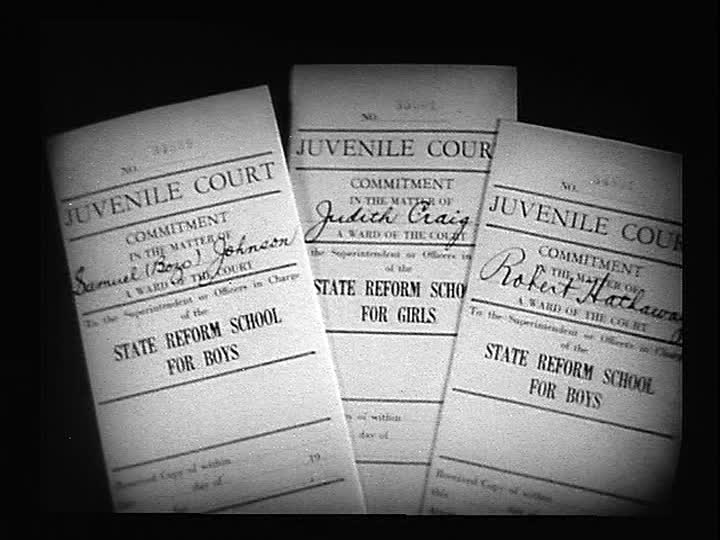 NO.
JUVENILE COURT
COMMITMENT
IN THE MATTER OF
Samuel (Bozo) Johnson
A WARD OF THE COURT
To the Superintendent or Officers in Charge
of the
STATE REFORM SCHOOL
FOR BOYS
Received Copy of within
19
day of
NO.
JUVENILE COUR
COMMITMENT
IN THE MATTER OF
Judith Craig
A WARD OF THE COURT
the Superintendent or Officers in
of the
STATE REFORM SCHO
FOR GIRLS
of within
day of
NO.
JUVENILE COUR
COMMITMENT
IN THE MATTER OF
Robert Hathaway
A WARD OF THE COURT
To the Superintendent or Officers in Charge
of the
STATE REFORM SCHOOL
FOR BOYS
Received Copy of within
this day of